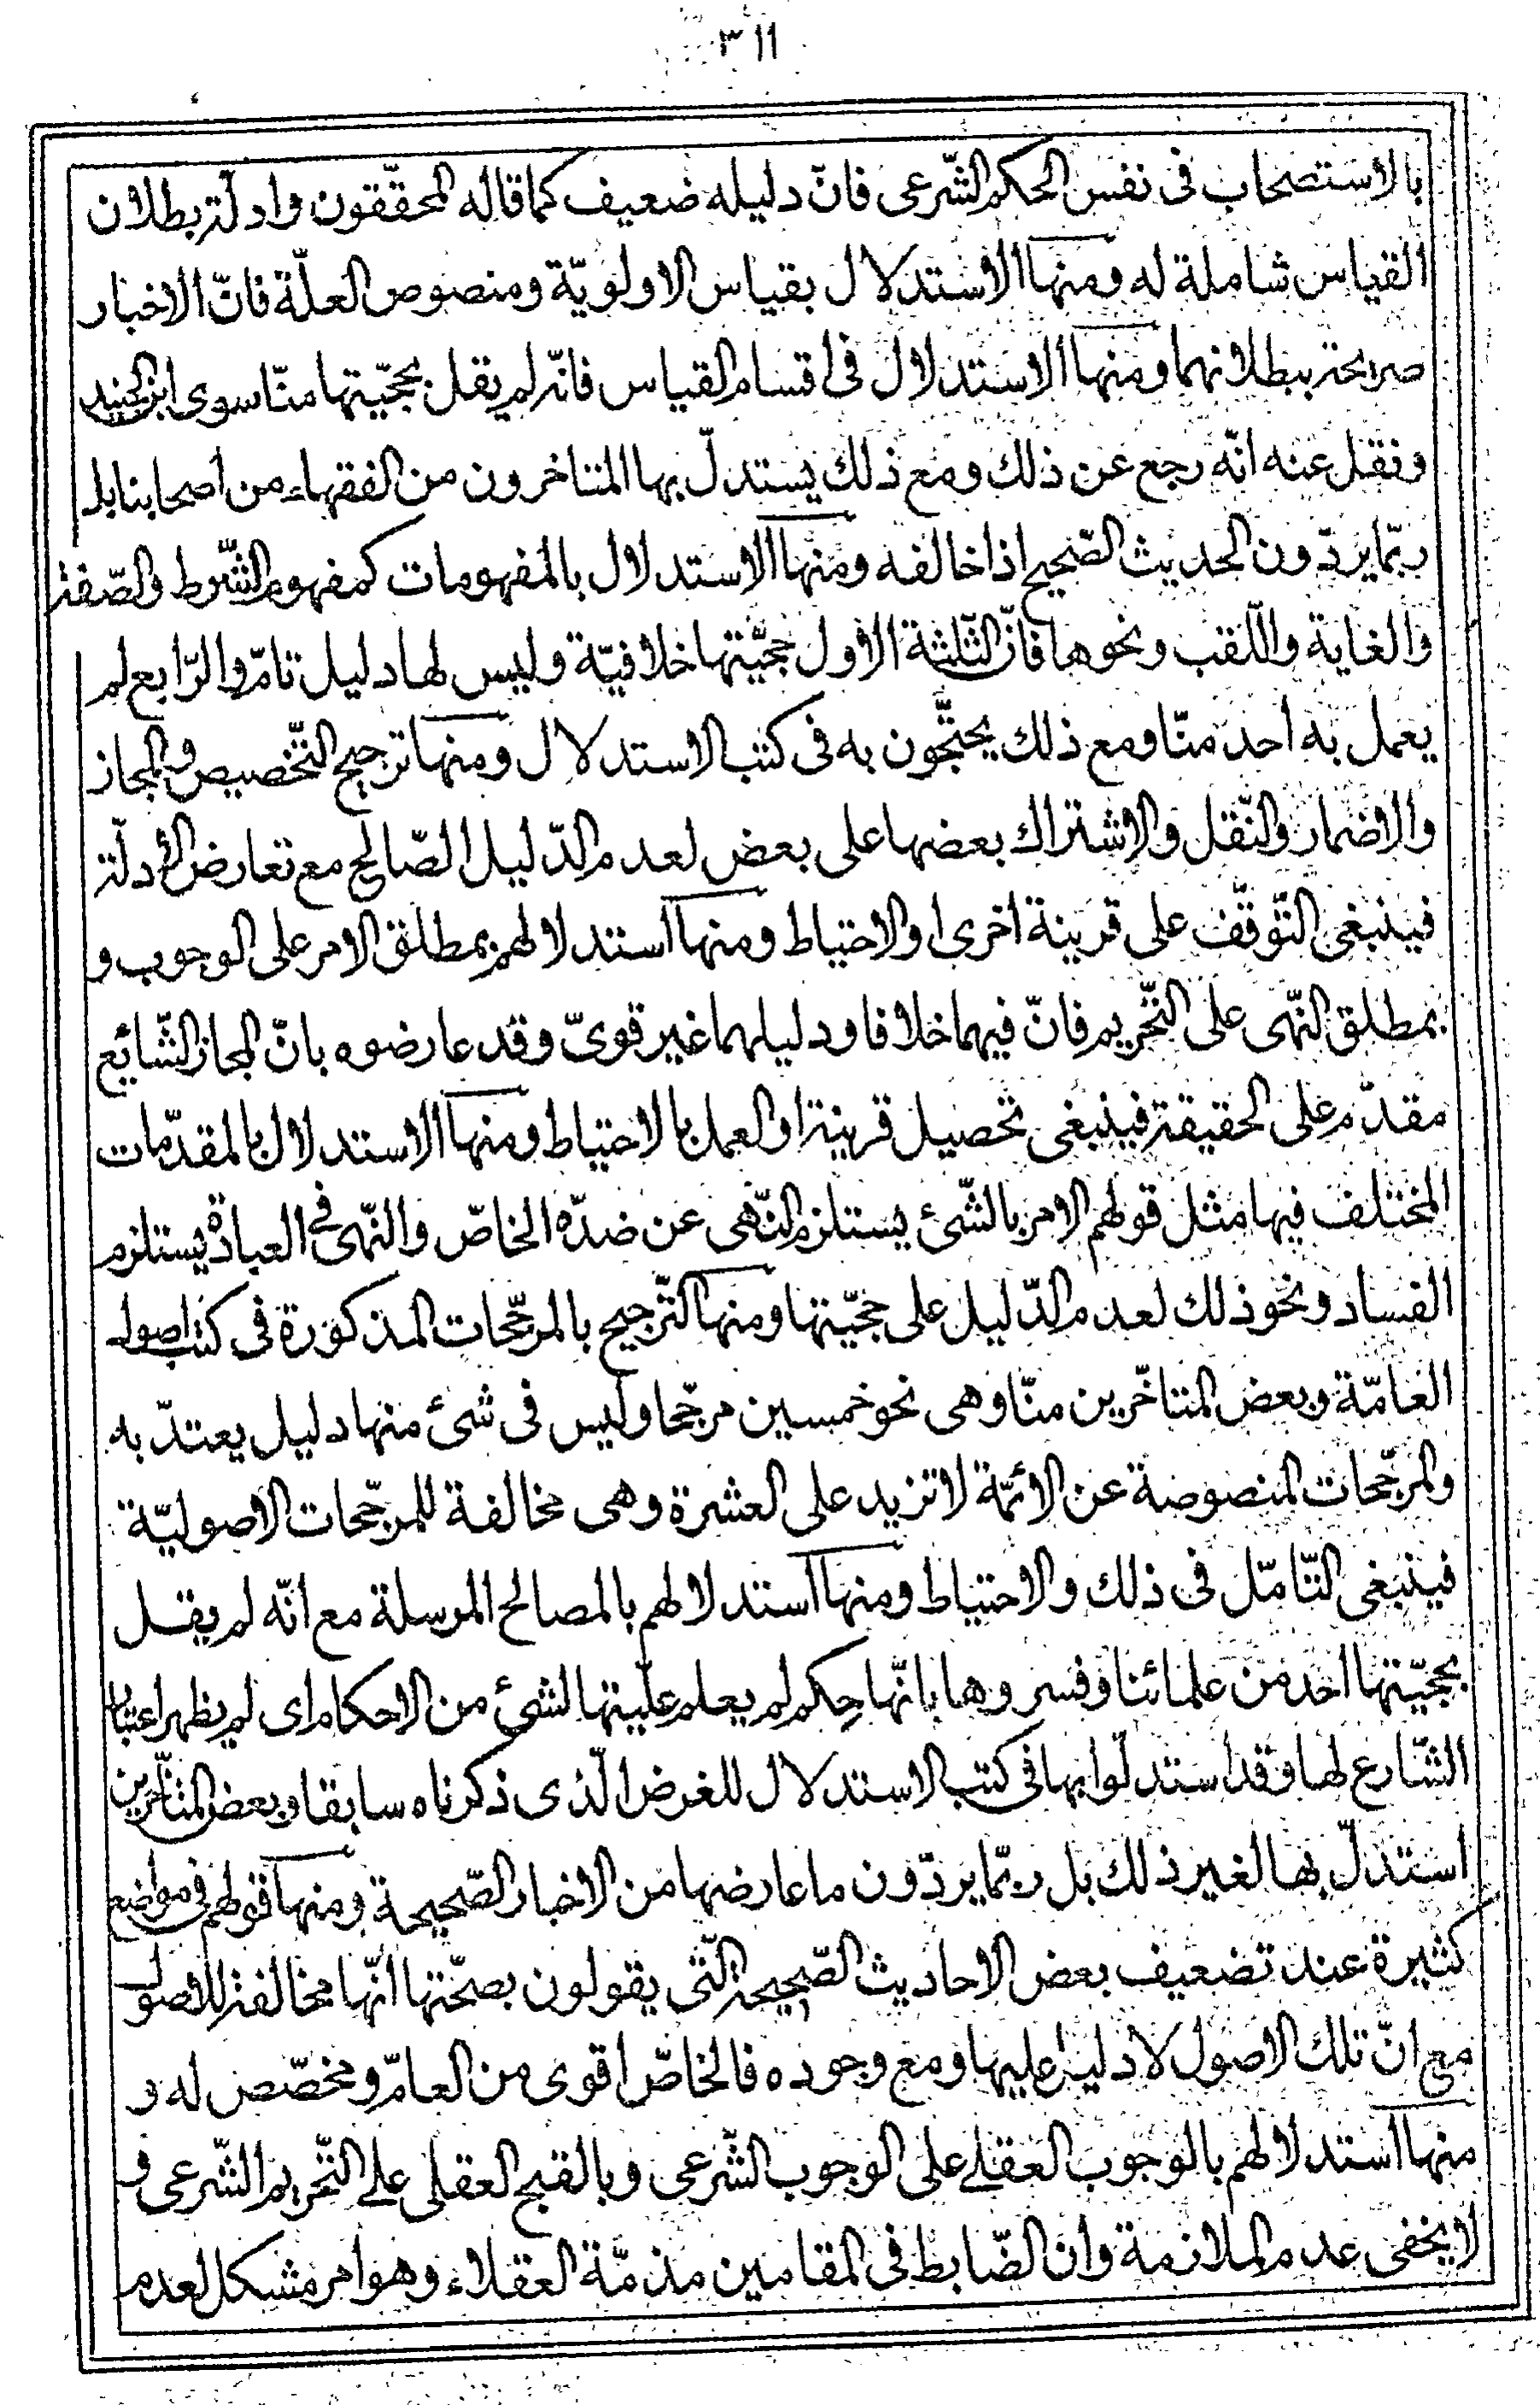 ٣١١
بالاستصحاب فى نفس الحكم الشّرعى فانّ دليله ضعيف كما قاله المحقّقون وادلّة بطلان
القياس شاملة له ومنها الاستدلال بقياس الاولويّة ومنصوص العلّة فانّ الاخبار
صريحة ببطلانهما ومنها الاستدلال فى اقسام القياس فانّه لم يقل بحجّيّتها منّا سوى ابن الجنيد
ونقل عنه انّه رجع عن ذلك ومع ذلك يستدلّ بها المتاخرون من الفقهاء من أصحابنا بل
ربّما يردّون الحديث الصّحيح اذا خالفه ومنها الاستدلال بالمفهومات كمفهوم الشّرط والصّفة
والغاية واللّقب ونحوها فانّ الثّلثة الاول حجّيّتها خلافيّة وليس لها دليل تامّ والرّابع لم
يعمل به احد منّا ومع ذلك يحتجّون به فى كتب الاستدلال ومنها ترجيح التّخصيص والمجاز
والاضمار والنّقل والاشتراك بعضها على بعض لعدم الدّليل الصّالح مع تعارض الأدلّة
فينبغى التّوقّف على قرينة اخرى او الاحتياط ومنها استدلالهم بمطلق الامر على الوجوب و
بمطلق النّهى على التّحريم فانّ فيهما خلافا ودليلهما غير قوىّ وقد عارضوه بانّ المجاز الشّايع
مقدّم على الحقيقة فينبغى تحصيل قرينة او العمل بالاحتياط ومنها الاستدلال بالمقدّمات
المختلف فيها مثل قولهم الامر بالشّئ يستلزم النّهى عن ضدّه الخاصّ والنّهى فى العبادة يستلزم
الفساد ونحو ذلك لعدم الدّليل على حجّيّتها ومنها التّرجيح بالمرجّحات المذكورة فى كتب اصول
العامّة وبعض المتاخّرين منّا وهى نحو خمسين مرجّحا وليس فى شئ منها دليل يعتدّ به
والمرجّحات المنصوصة عن الائمّة لا تزيد على العشرة وهى مخالفة للمرجّحات الاصوليّة
فينبغى التّامّل فى ذلك والاحتياط ومنها استدلالهم بالمصالح المرسلة مع انّه لم يقل
بحجّيّتها احد من علمائنا وفسروها بانّها حِكم لم يعلم علّيتها لشئ من الاحكام اى لم يظهر اعتبار
الشّارع لها وقد استدلّوا بها فى كتب الاستدلال للغرض الّذى ذكرناه سابقا وبعض المتأخّرين
استدلّ بها لغير ذلك بل ربّما يردّون ما عارضها من الاخبار الصّحيحة ومنها قولهم فى مواضع
كثيرة عند تضعيف بعض الاحاديث الصّحيحة الّتى يقولون بصحّتها انّها مخالفة للاصول
مع انّ تلك الاصول لا دليل عليها ومع وجوده فالخاصّ اقوى من العامّ ومخصّص له و
منها استدلالهم بالوجوب العقلى على الوجوب الشّرعى وبالقبح العقلى على التّحريم الشّرعى و
لا يخفى عدم الملازمة وان الضّابط فى المقامين مذمّة العقلاء وهو امر مشكل لعدم